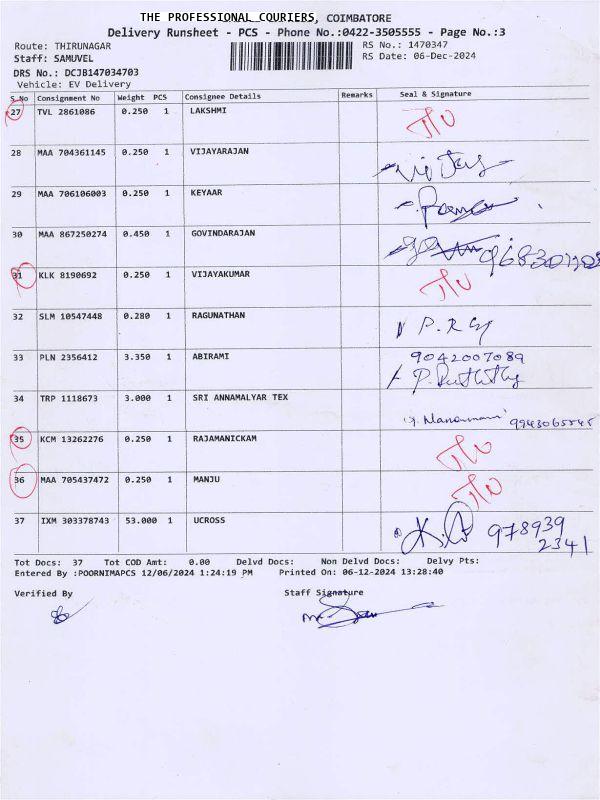 THE PROFESSIONAL COURIERS, COIMBATORE
Delivery Runsheet - PCS - Phone No.:0422-3505555 - Page No.:3
Route: THIRUNAGAR
RS No.: 1470347
Staff: SAMUVEL
RS Date: 06-Dec-2024
DRS No.: DCJB147034703
Vehicle: EV Delivery
S No Consignment No Weight PCS Consignee Details Remarks Seal & Signature
27 TVL 2861086 0.250 1 LAKSHMI
28 MAA 704361145 0.250 1 VIJAYARAJAN
29 MAA 706106003 0.250 1 KEYAAR
30 MAA 867250274 0.450 1 GOVINDARAJAN
31 KLK 8190692 0.250 1 VIJAYAKUMAR
32 SLM 10547448 0.280 1 RAGUNATHAN
33 PLN 2356412 3.350 1 ABIRAMI 9042007089
34 TRP 1118673 3.000 1 SRI ANNAMALYAR TEX
35 KCM 13262276 0.250 1 RAJAMANICKAM
36 MAA 705437472 0.250 1 MANJU
37 IXM 303378743 53.000 1 UCROSS 978939
2341
Tot Docs: 37 Tot COD Amt: 0.00 Delvd Docs: Non Delvd Docs: Delvy Pts:
Entered By :POORNIMAPCS 12/06/2024 1:24:19 PM Printed On: 06-12-2024 13:28:40
Verified By Staff Signature